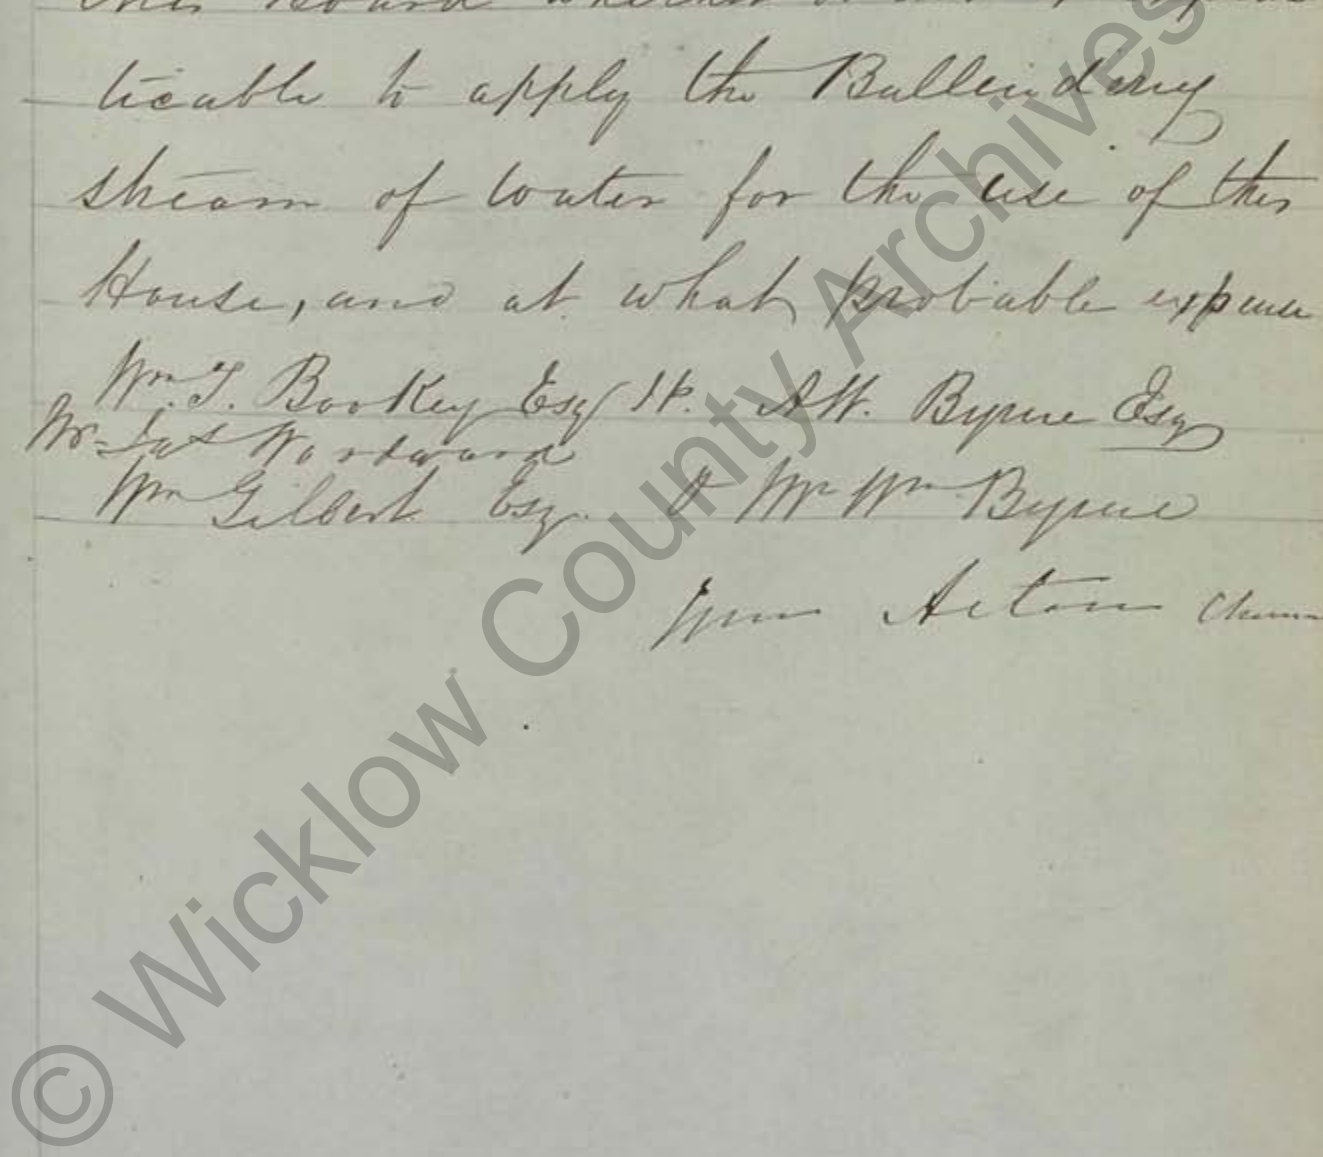 this Board whether
ticable to apply the Ballinderry
stream of water for the use of this
House, and at what probable expense
Wm. T. Bookey Esq J.P. AW. Byrne Esq
Mr Jas Woodward
Wm Gilbert Esq. & Mr Wm Byrne
Wm Acton Chairman
© Wicklow County Archives